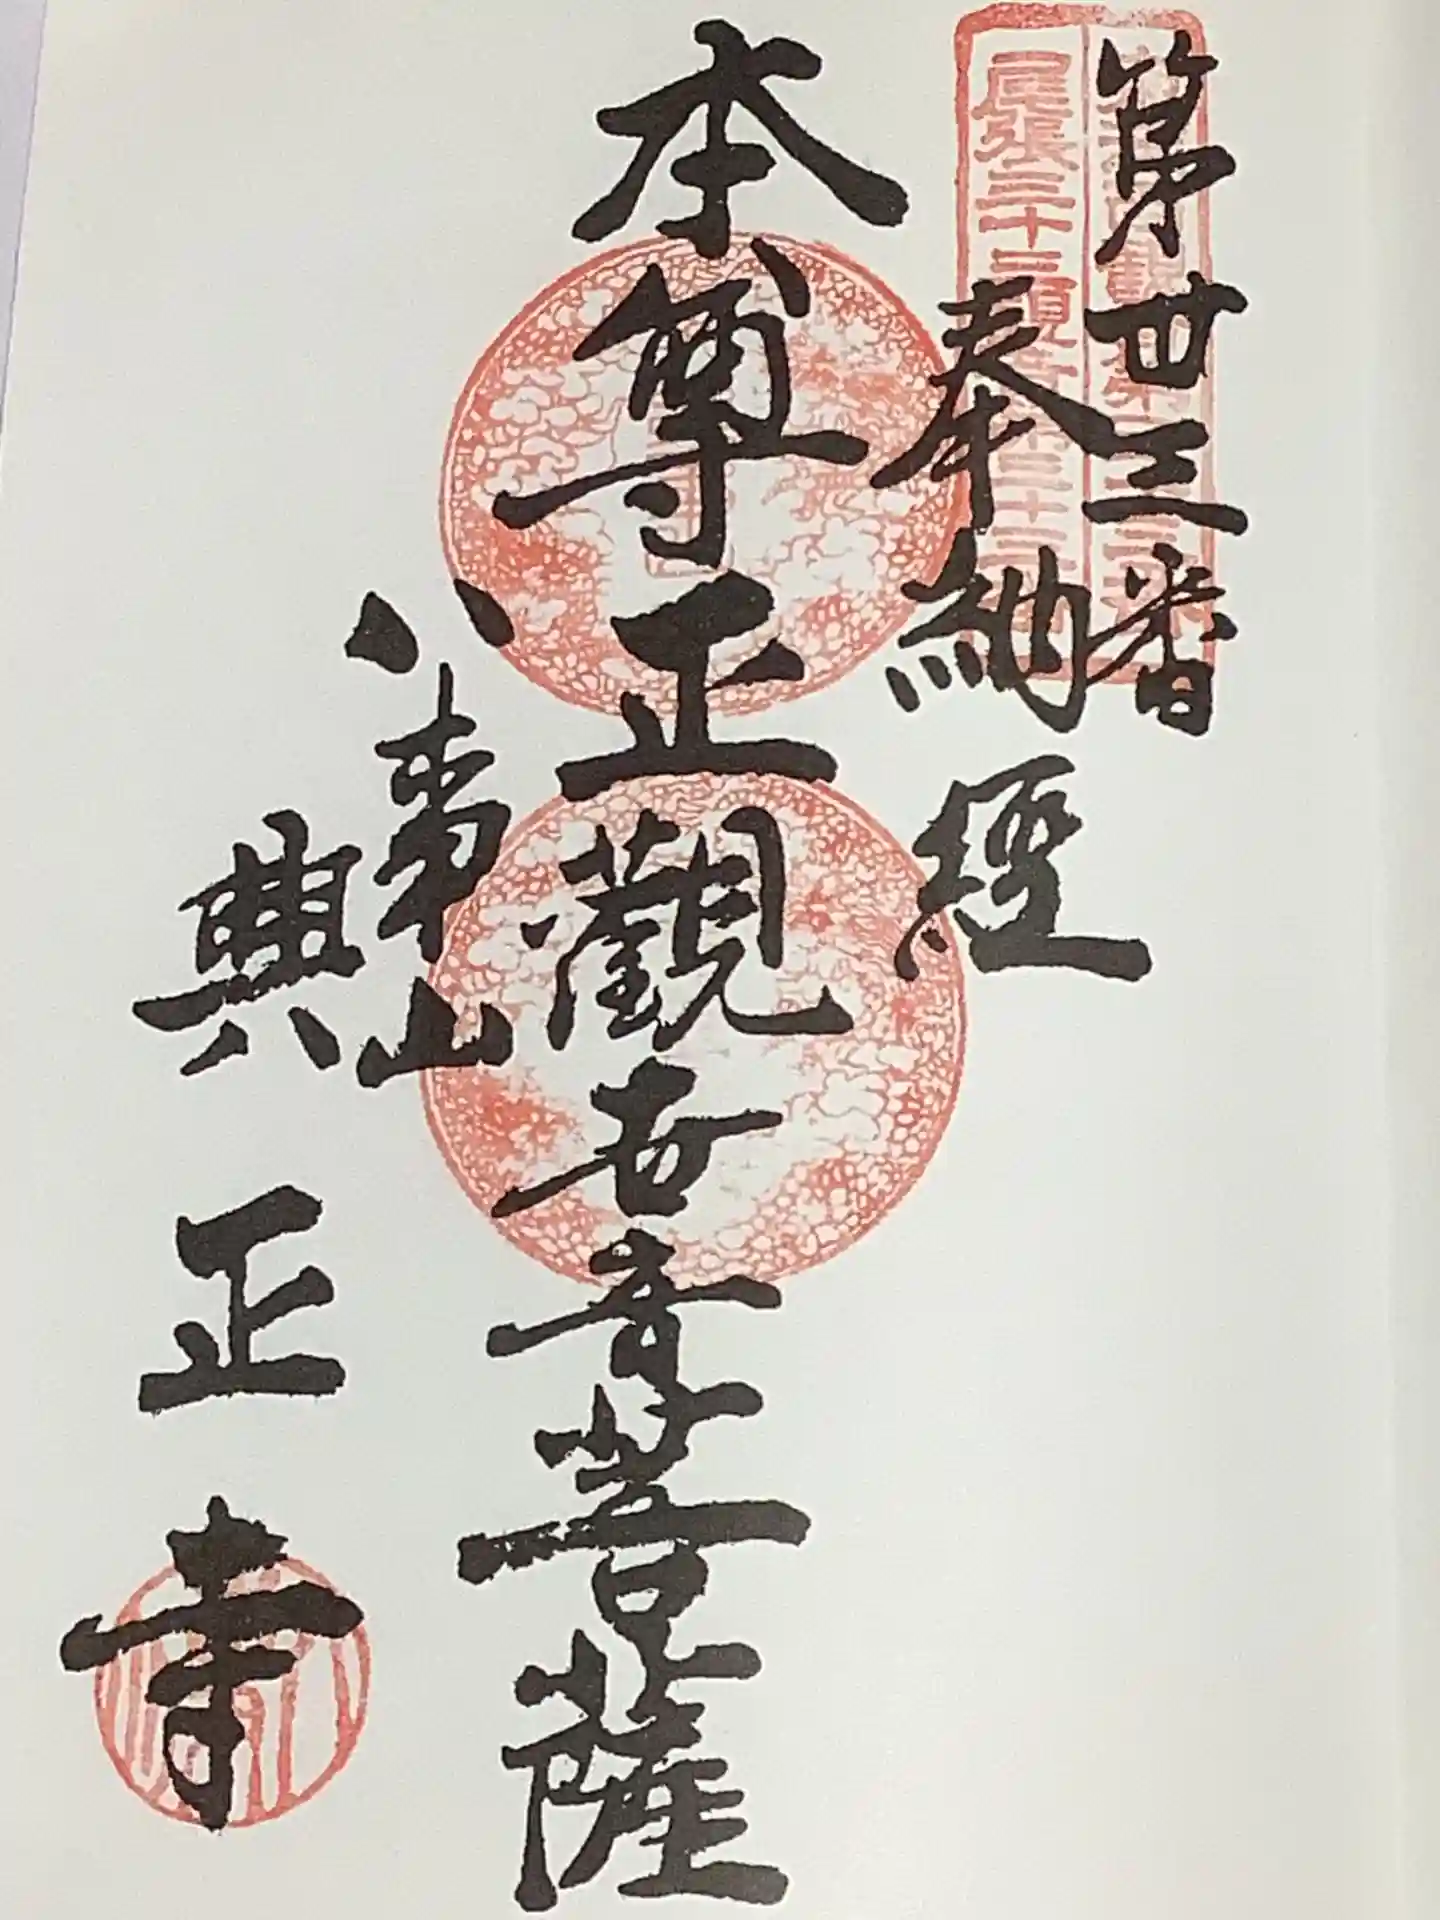 第廿三番
奉納經
本尊正觀世音菩薩
八事山
興正寺
尾張三十三観音第三十三